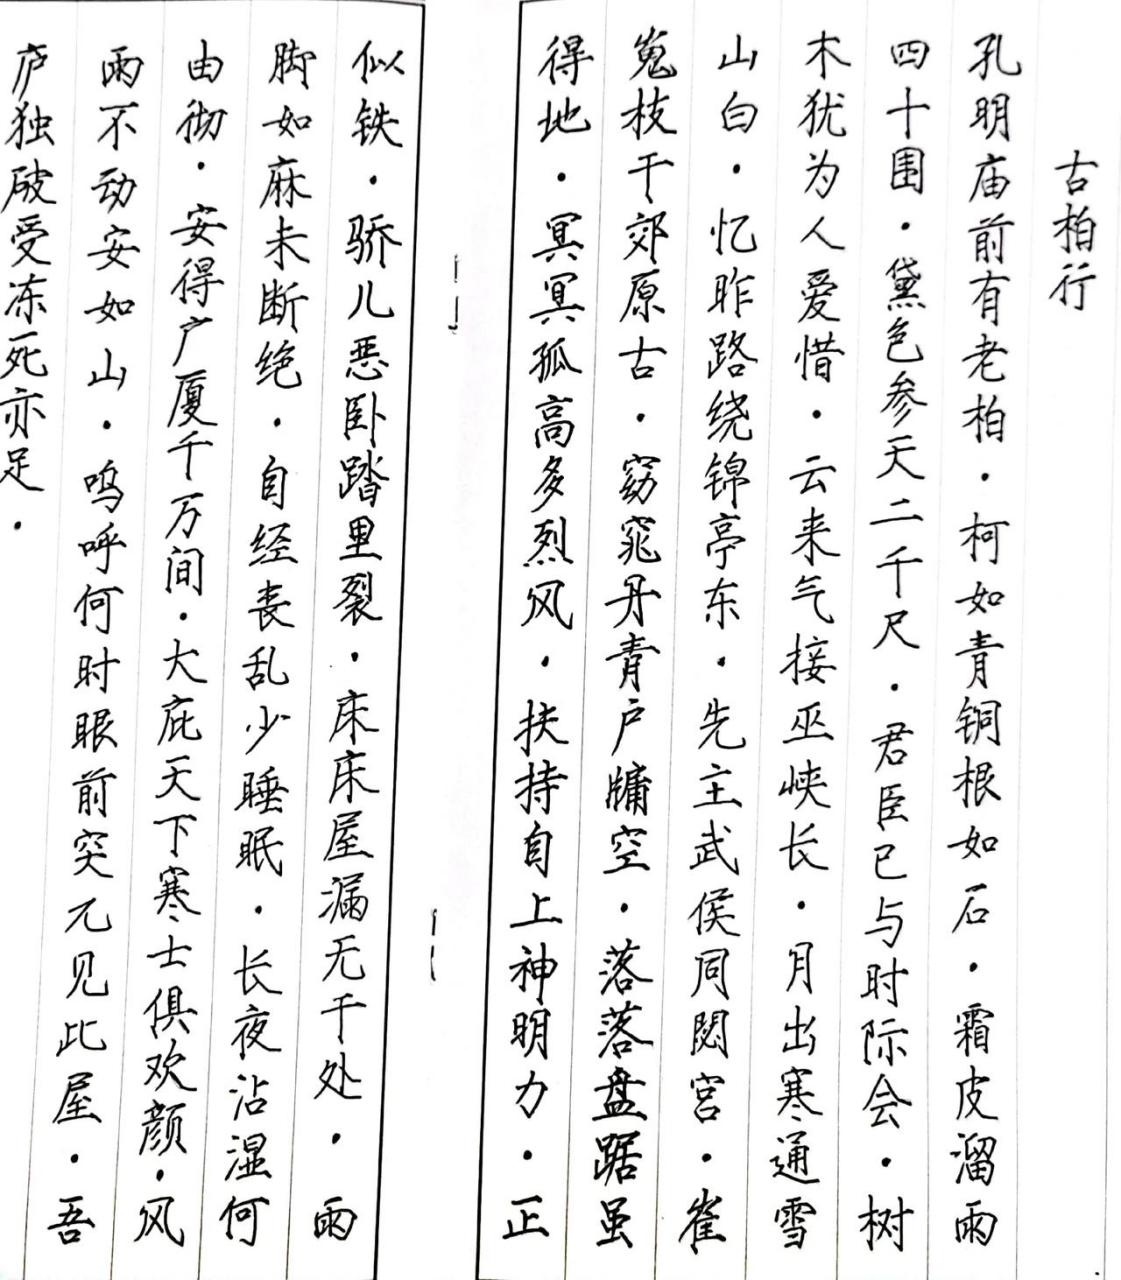 古柏行
孔明庙前有老柏·柯如青铜根如石·霜皮溜雨
四十围·黛色参天二千尺·君臣已与时际会·树
木犹为人爱惜·云来气接巫峡长·月出寒通雪
山白·忆昨路绕锦亭东·先主武侯同閟宫·崔
嵬枝干郊原古·窈窕丹青户牖空·落落盘踞虽
得地·冥冥孤高多烈风·扶持自上神明力·正
似铁·骄儿恶卧踏里裂·床床屋漏无干处·雨
脚如麻未断绝·自经丧乱少睡眠·长夜沾湿何
由彻·安得广厦千万间·大庇天下寒士俱欢颜·风
雨不动安如山·呜呼何时眼前突兀见此屋·吾
庐独破受冻死亦足·